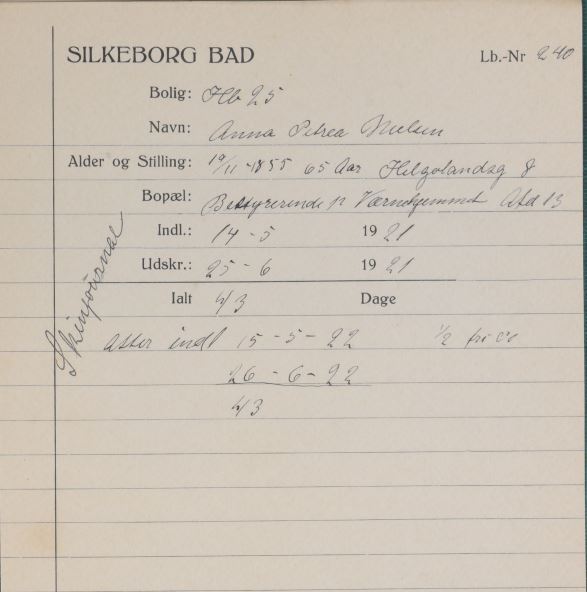 SILKEBORG BAD Lb.-Nr 240
Bolig: Hb 25
Navn: Anna Petrea Nielsen
Alder og Stilling: 19/11-1855 65 Aar Helgolandsg 8
Bopæl: Bestyrerinde p Værnehjemmet Afd 13
Indl.: 14-5 1921
Udskr.: 25-6 1921
Ialt 43 Dage
atter indl 15-5-22 1/2 fri
26-6-22
43